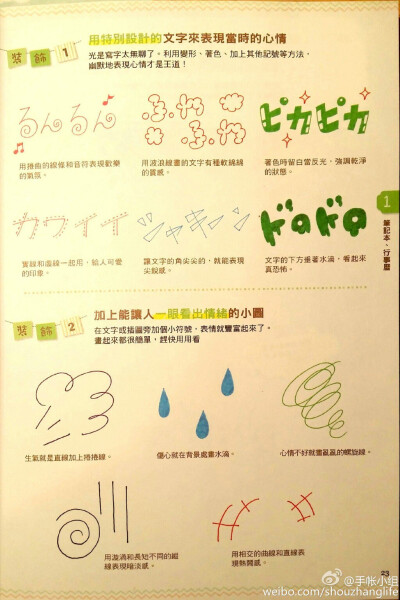 裝飾 1
用特別設計的文字來表現當時的心情
光是寫字太無聊了。利用變形、著色、加上其他記號等方法,
幽默地表現心情才是王道!
るんるん
ふわふわ
ピカピカ
用捲曲的線條和音符表現歡樂
的氣氛。
用波浪線畫的文字有種軟綿綿
的質感。
著色時留白當反光,強調乾淨
的狀態。
カワイイ
ジャキーン
ドロドロ
實線和虛線一起用,給人可愛
的印象。
讓文字的角尖尖的,就能表現
尖銳感。
文字的下方垂著水滴,看起來
真恐怖。
1
筆記本、行事曆
裝飾 2
加上能讓人一眼看出情緒的小圖
在文字或插圖旁加個小符號,表情就豐富起來了。
畫起來都很簡單,趕快用用看
生氣就是直線加上捲捲線。
傷心就在背景處畫水滴。
心情不好就畫亂亂的螺旋線。
用漩渦和長短不同的縱
線表現暗淡感。
用相交的曲線和直線表
現熱鬧感。
23
@手帐小组
weibo.com/shouzhanglife